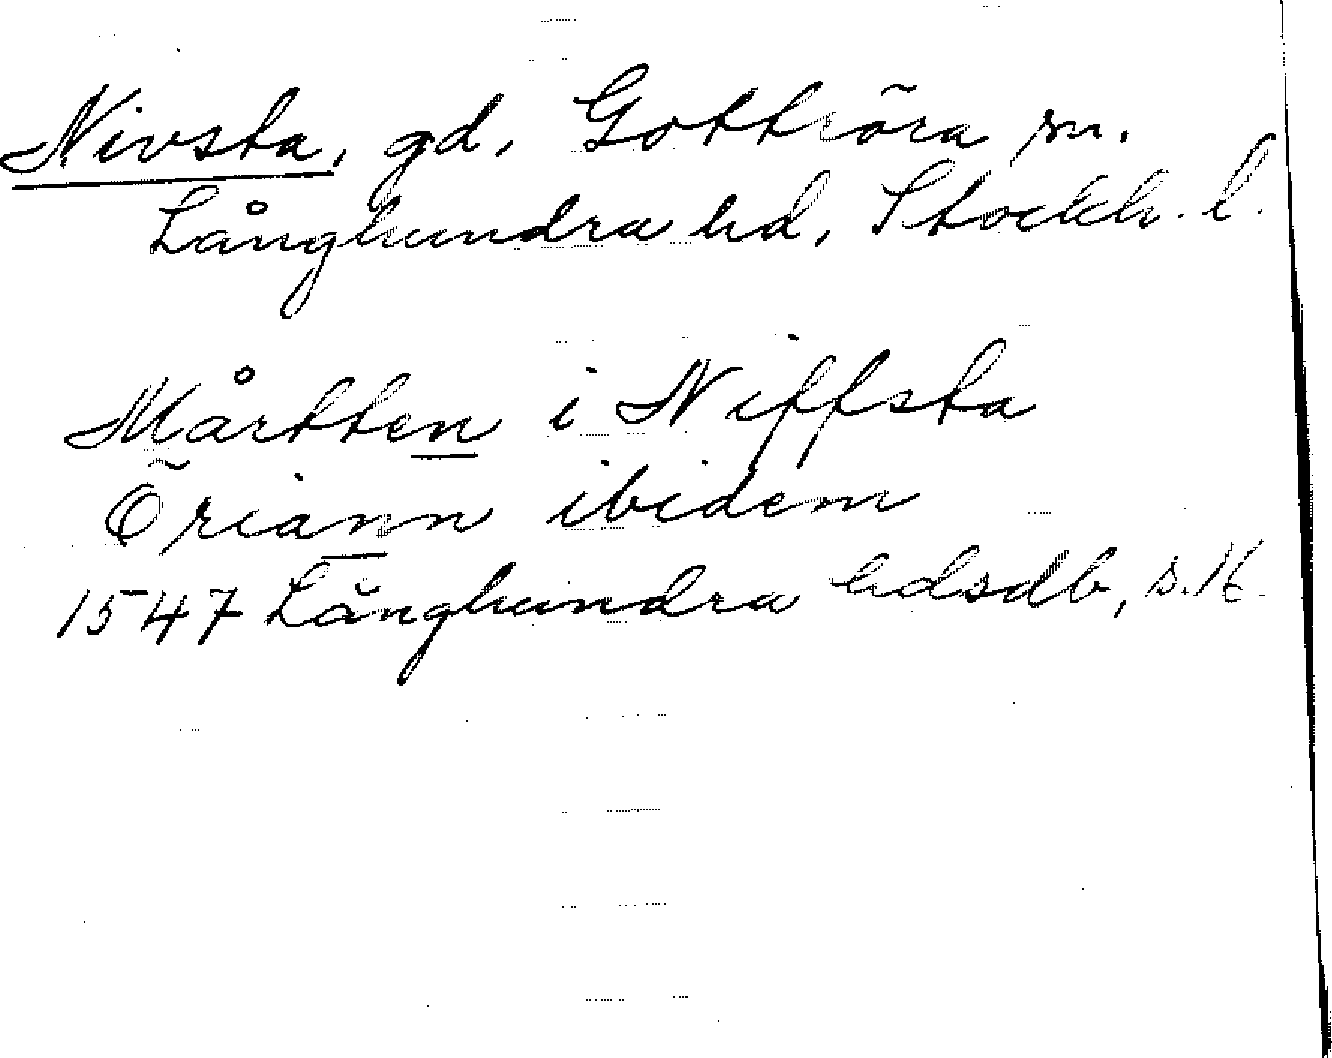 Nivsta, gd, Gottröra sn.
Långhundra hd, Stockh. l.
Mårtten i Niffsta
Öriann ibidem
1547 Långhundra hdsdb, s. 16.